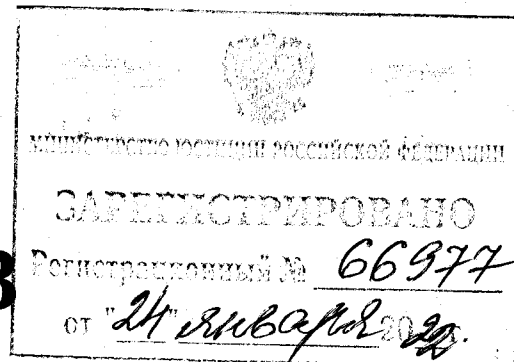 МИНИСТЕРСТВО ЮСТИЦИИ РОССИЙСКОЙ ФЕДЕРАЦИИ
ЗАРЕГИСТРИРОВАНО
Регистрационный № 66977
от "24" января 2022.